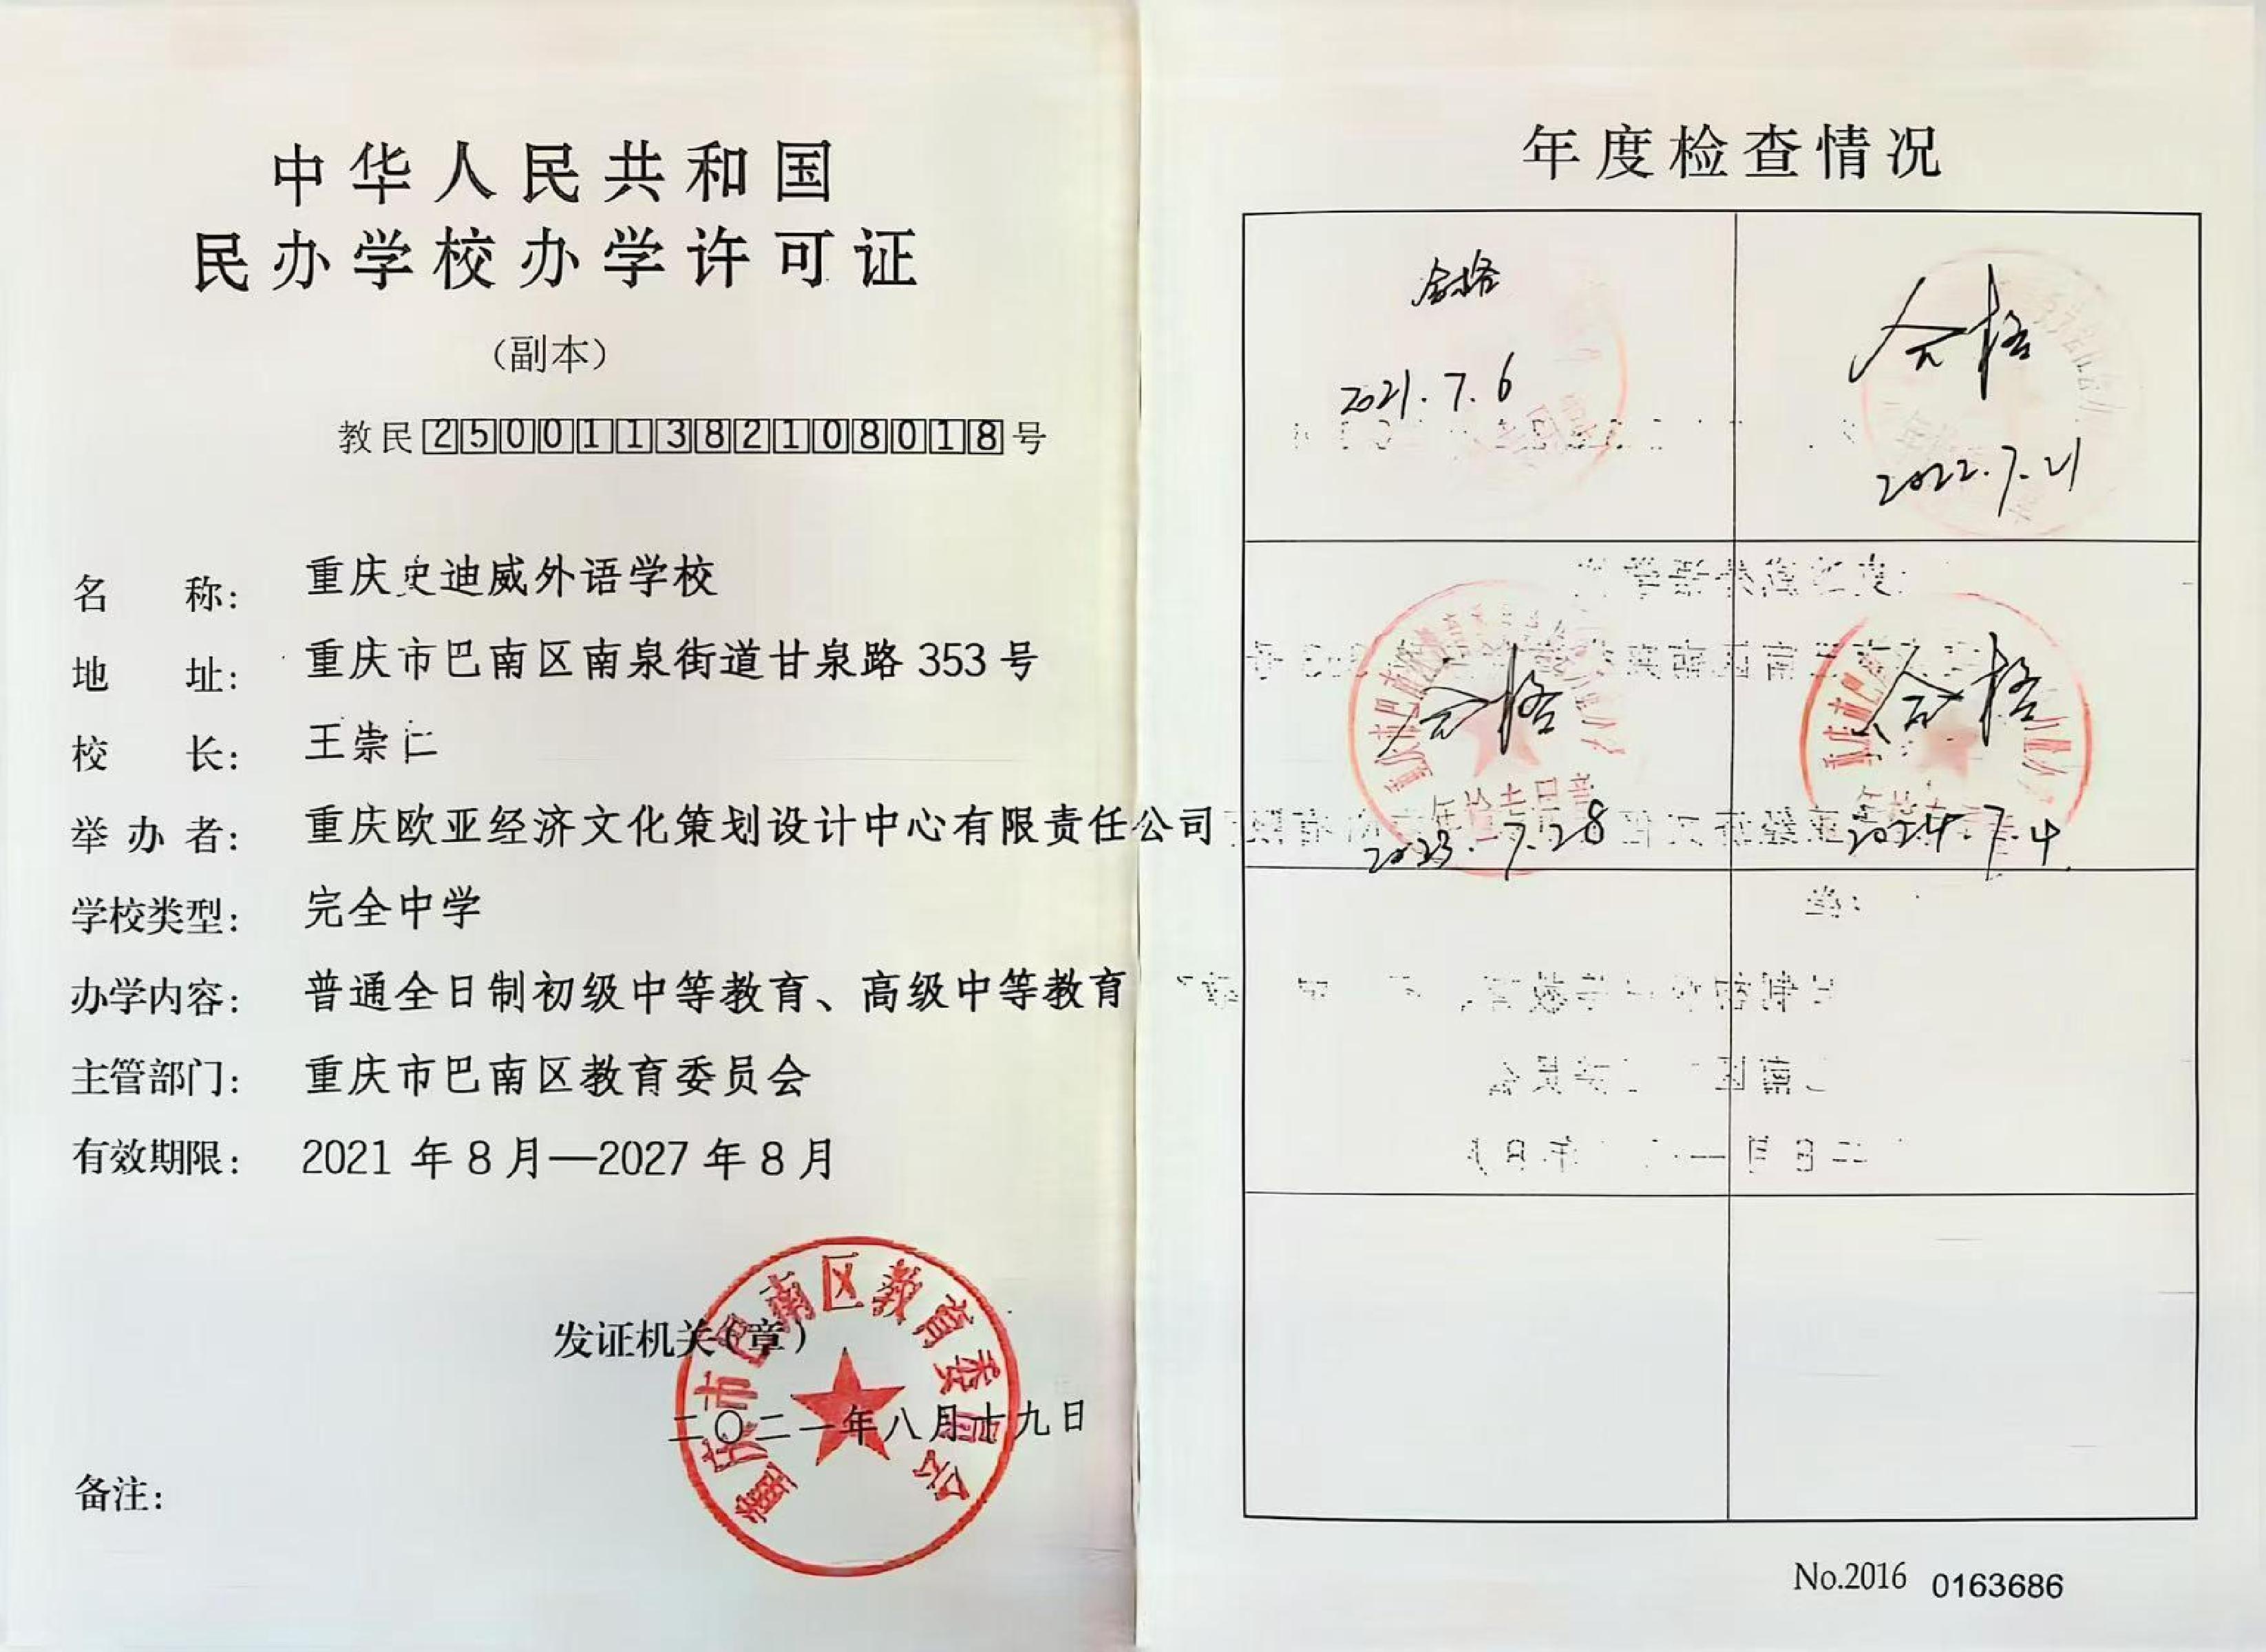 中华人民共和国
民办学校办学许可证
（副本）
教民250011382108018号
名称： 重庆史迪威外语学校
地址： 重庆市巴南区南泉街道甘泉路 353 号
校长： 王崇仁
举办者： 重庆欧亚经济文化策划设计中心有限责任公司
学校类型： 完全中学
办学内容： 普通全日制初级中等教育、高级中等教育
主管部门： 重庆市巴南区教育委员会
有效期限： 2021 年 8 月—2027 年 8 月
发证机关（章）
重庆市巴南区教育委员会
二〇二一年八月十九日
备注：
年度检查情况
合格
2021.7.6
合格
2022.7.21
合格
2023.7.28
合格
2024.7.4
No.2016 0163686